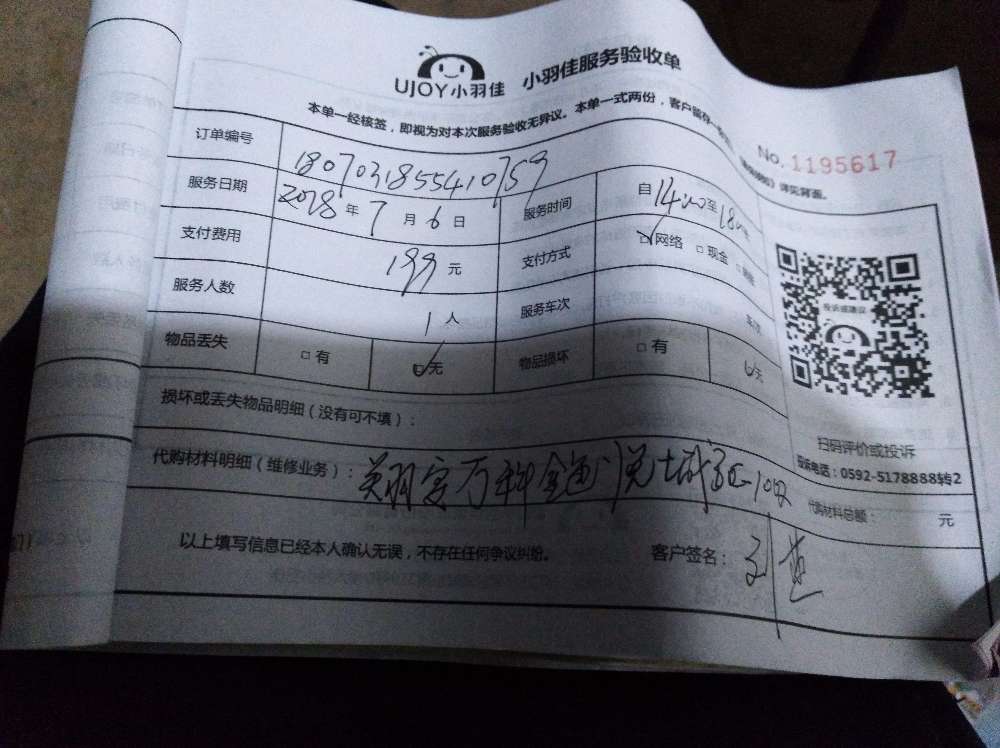 UJOY小羽佳 小羽佳服务验收单
本单一经核签，即视为对本次服务验收无异议。本单一式两份，客户留存一 详见背面。
No. 1195617
订单编号 1807031855410759
服务日期 2018 年 7 月 6 日 服务时间 自 14:00 至 18
支付费用 199 元 支付方式 网络 现金
服务人数 1 人 服务车次
物品丢失 有 无 物品损坏 有 无
投诉或建议
扫码评价或投诉
投诉电话：0592-5178888转2
损坏或丢失物品明细（没有可不填）：
代购材料明细（维修业务）： 万科金 城 代购材料总额： 元
以上填写信息已经本人确认无误，不存在任何争议纠纷。 客户签名： 刘